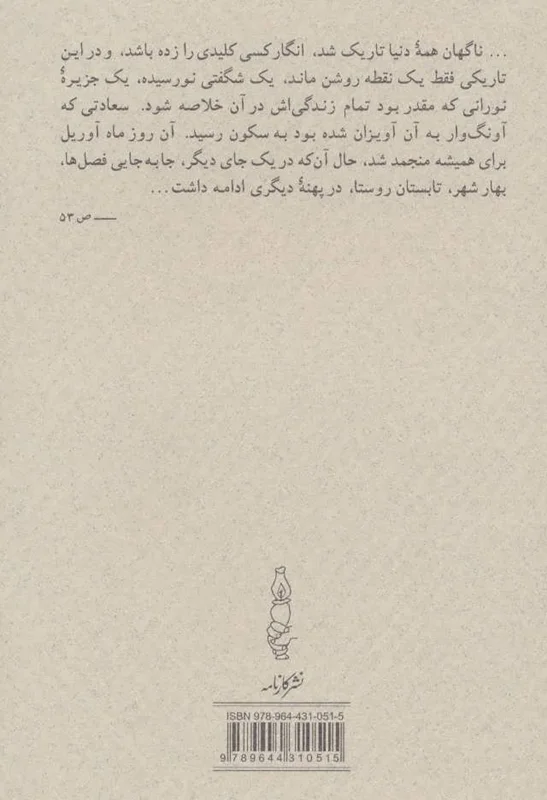 ... ناگهان همهٔ دنیا تاریک شد، انگار کسی کلیدی را زده باشد، و در این
تاریکی فقط یک نقطه روشن ماند، یک شگفتی نورسیده، یک جزیرهٔ
نورانی که مقدر بود تمام زندگی‌اش در آن خلاصه شود. سعادتی که
آونگ‌وار به آن آویزان شده بود به سکون رسید. آن روز ماه آوریل
برای همیشه منجمد شد، حال آن‌که در یک جای دیگر، جابه‌جایی فصل‌ها،
بهار شهر، تابستان روستا، در پهنهٔ دیگری ادامه داشت...
— ص ۵۳
نشر کارنامه
ISBN 978-964-431-051-5
9 789644 310515